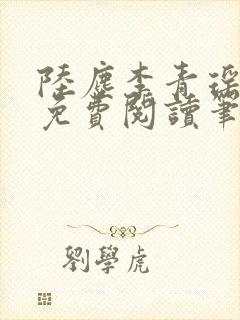 陸塵李青瑤
免費閱讀筆
劉學虎